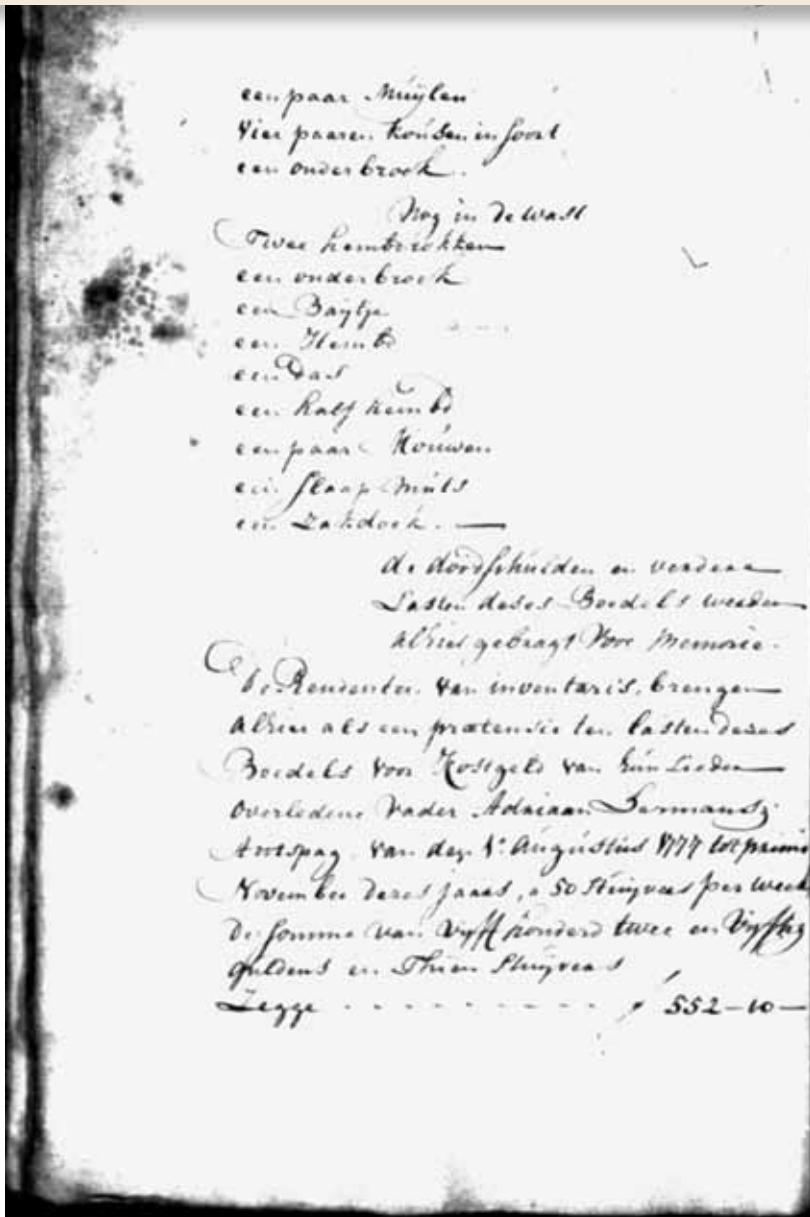 een paar Muijlen
Vier paaren kousen in soort
een onderbroek.
Nog in de wast
Twee hembrokken
een onderbroek
een Baijtje
een Hembd
een Das
een half hembd
een paar Mouwen
een slaap Muts
een Zakdoek. —
de doodschulden en verdere
Lasten deses Boedels werden
alhier gebragt voor Memorie.
De Rendanten van inventaris, brengen
alhier als een praetensie ten lasten deses
Boedels voor Kostgeld van hun Lieden
overledene Vader Adriaan Hermansz.
van den 1e. Augustus 1777 tot primo
November deses jaars, a 50 Stuijvers per week
De somme van Vijff honderd twee en Vijftig
guldens en Thien Stuijvers
Zegge - - - - - - - - - - ƒ 552-10-